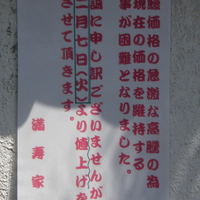 鰻価格の急激な高騰の為
現在の価格を維持する
事が困難となりました。
誠に申し訳ございませんが
二月七日(火)より値上げを
させて頂きます。
満寿家